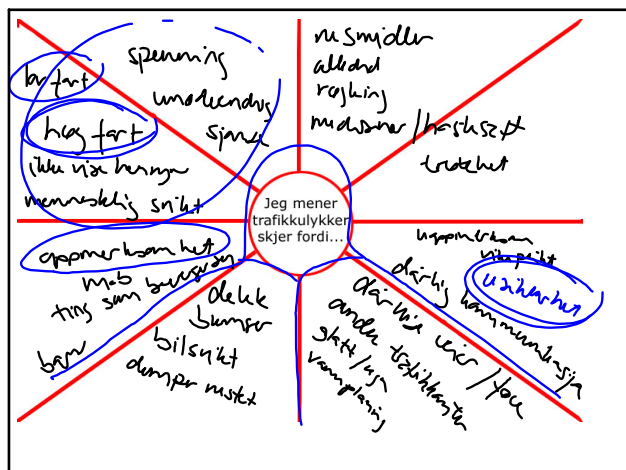 lav fart
spenning
unødvendig
sjanse
høg fart
ikke vise hensyn
menneskelig svikt
rusmidler
alkohol
røyking
medisiner /
trøtthet
Jeg mener
trafikkulykker
skjer fordi...
oppmerksomhet
mob
ting som beveger seg
barn
dekk
bremser
bilsvikt
demper rustet
uoppmerksom
vikeplikt
usikkerhet
dårlig kommunikasjon
dårlige veier / føre
andre trafikkanter
glatt /
vannplaning